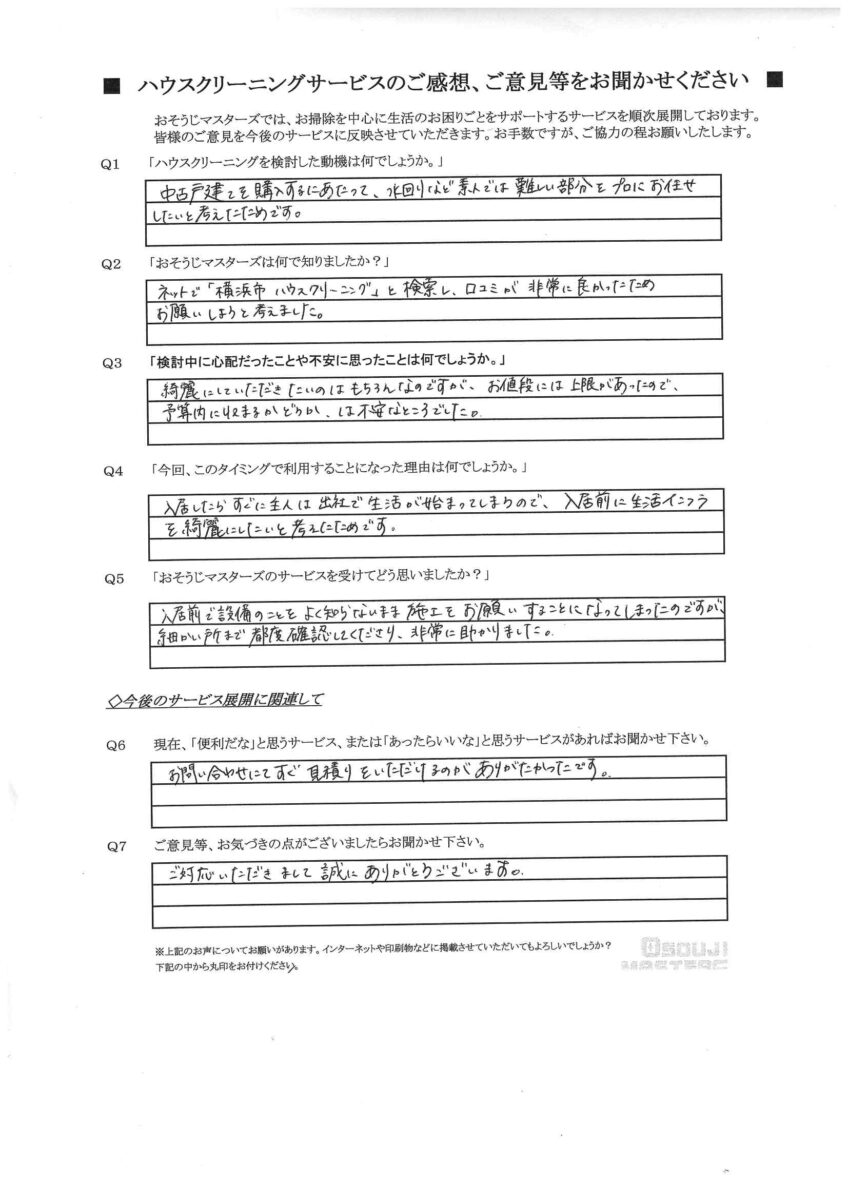 ■ ハウスクリーニングサービスのご感想、ご意見等をお聞かせください ■
おそうじマスターズでは、お掃除を中心に生活のお困りごとをサポートするサービスを順次展開しております。
皆様のご意見を今後のサービスに反映させていただきます。お手数ですが、ご協力の程お願いしたします。
Q1 「ハウスクリーニングを検討した動機は何でしょうか。」
中古戸建てを購入するにあたって、水回りなど素人では難しい部分をプロにお任せ
したいと考えたためです。
Q2 「おそうじマスターズは何で知りましたか？」
ネットで「横浜市 ハウスクリーニング」と検索し、口コミが非常に良かったため
お願いしようと考えました。
Q3 「検討中に心配だったことや不安に思ったことは何でしょうか。」
綺麗にしていただきたいのはもちろんなのですが、お値段には上限があったので、
予算内に収まるかどうか、は不安なところでした。
Q4 「今回、このタイミングで利用することになった理由は何でしょうか。」
入居したらすぐに主人は出社で生活が始まってしまうので、入居前に生活インフラ
を綺麗にしたいと考えたためです。
Q5 「おそうじマスターズのサービスを受けてどう思いましたか？」
入居前で設備のことをよく知らないまま施工をお願いすることになってしまったのですが、
細かい所まで都度確認してくださり、非常に助かりました。
◇今後のサービス展開に関連して
Q6 現在、「便利だな」と思うサービス、または「あったらいいな」と思うサービスがあればお聞かせ下さい。
お問い合わせにてすぐ見積りをいただけるのがありがたかったです。
Q7 ご意見等、お気づきの点がございましたらお聞かせ下さい。
ご対応いただきまして誠にありがとうございます。
※上記のお声についてお願いがあります。インターネットや印刷物などに掲載させていただいてもよろしいでしょうか？
下記の中から丸印をお付けください。
OSOUJI
MASTERS